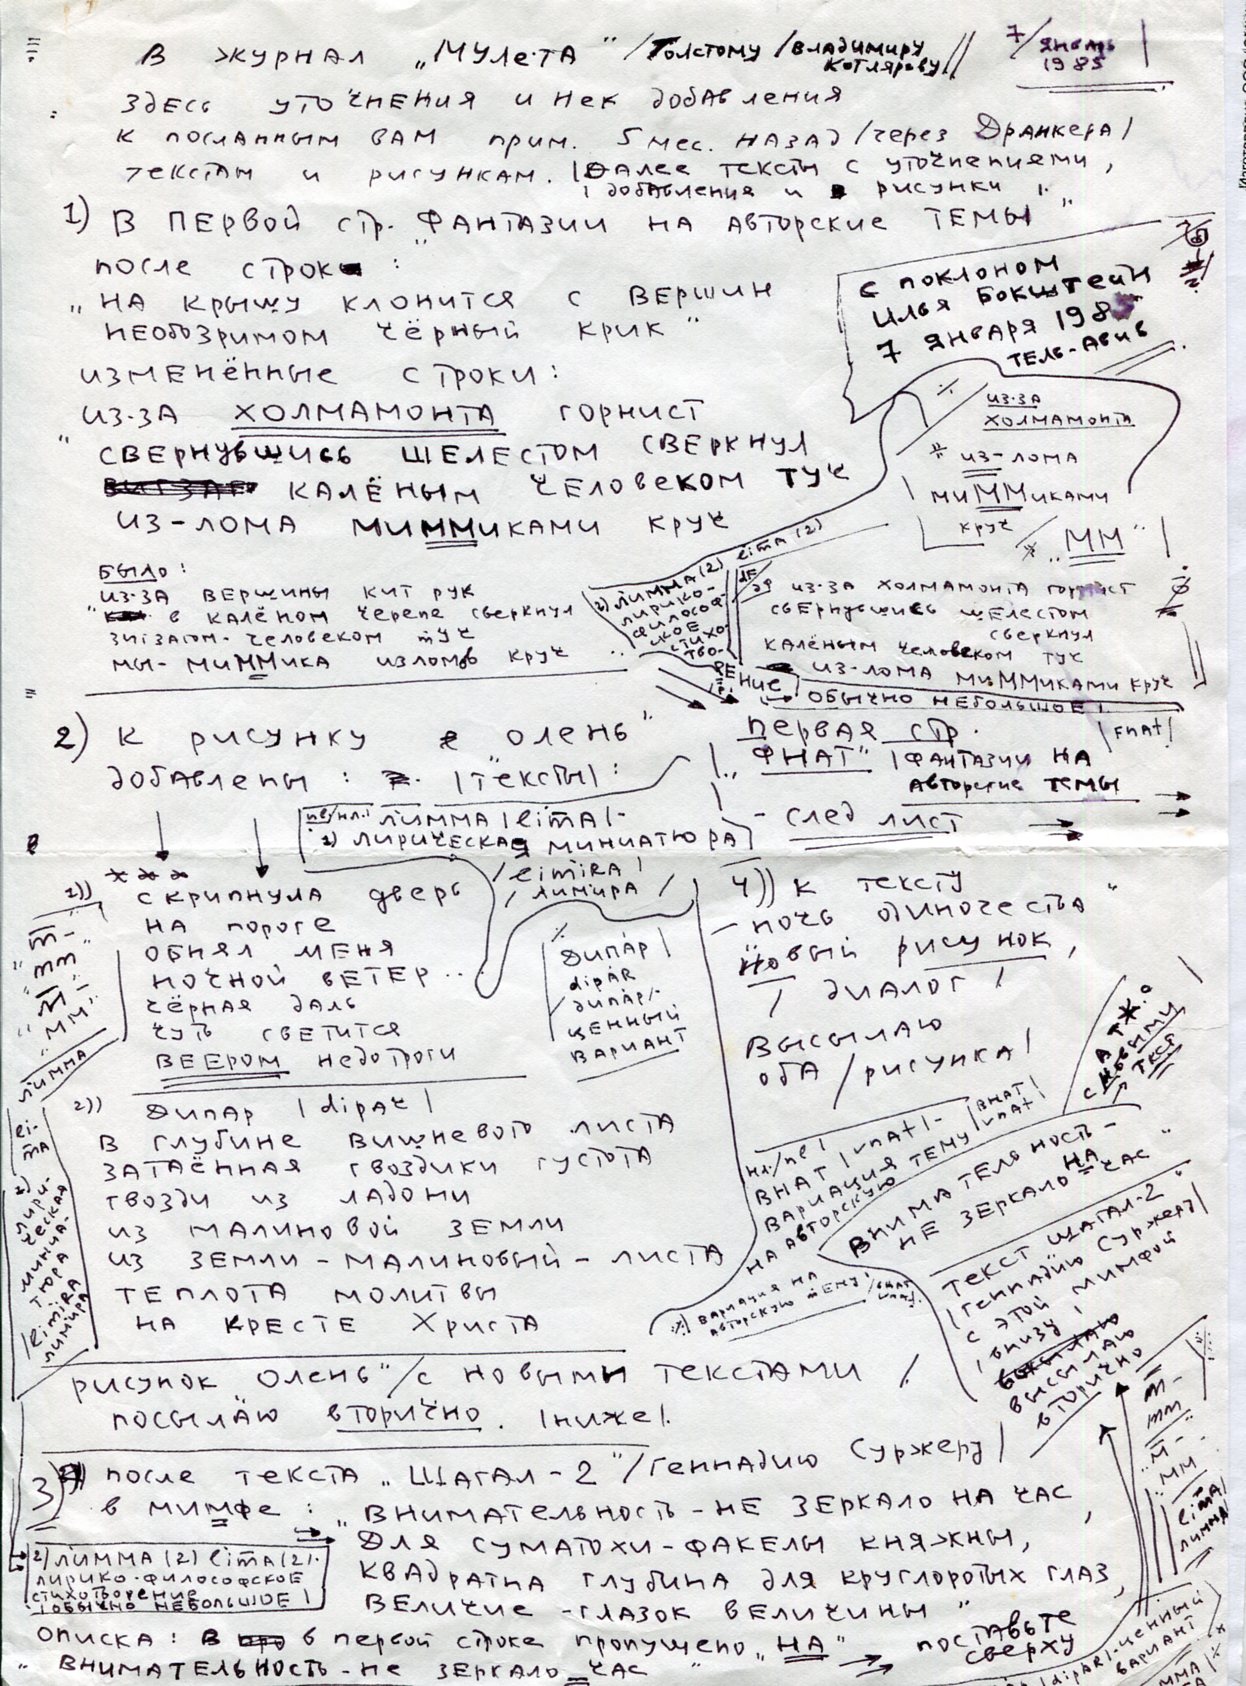 В журнал „Мулета" /Толстому /Владимиру
Котлярову//
7/ январь
1985
здесь уточнения и нек добавления
к посланным вам прим. 5 мес. назад /через Дранкера/
текстам и рисункам. /далее тексты с уточнениями,
добавления и рисунки
1) В первой стр. „Фантазии на авторские темы"
после строк:
„на крышу клонится с вершин
необозримом чёрный крик"
изменённые строки:
из-за холмамонта горнист
„свернувшись шелестом сверкнул
калёным человеком туч
из-лома миММиками круч
было:
из-за вершины кит рук
" в калёном черепе сверкнул
зигзагом-человеком туч
мы-миММика изломов круч
с поклоном
Илья Бокштейн
7 января 1985
Тель-Авив
из-за
холмамонта
* из-лома
миММиками
круч
* „ММ"
2) лимма (2) lima (2)
лирико-
философ-
ское
стихо-
тво-
рение
обычно небольшое
из-за холмамонта горнист
свернувшись шелестом
сверкнул
калёным человеком туч
из-лома миММиками круч
первая стр.
„ФНАТ" /фантазии на
авторские темы
/fnat/
- след лист
2) к рисунку „олень"
добавлены: /тексты/:
лимма /lima/-
1) лирическая миниатюра
/limira/
лимира /
1)) * * *
скрипнула дверь
на пороге
обнял меня
ночной ветер..
чёрная даль
чуть светится
веером недотроги
дипар/
dipar
дипар/-
ценный
вариант
2)) дипар /dipar/
в глубине вишневого листа
затаённая гвоздики густота
гвозди из ладони
из малиновой земли
из земли-малиновый-листа
теплота молитвы
на кресте Христа
"м-
„мм"
лимма
li-
ma
1) лири-
ческая
миниа-
тюра
/limira
лимира
рисунок „олень"/с новыми текстами /
посылаю вторично. /ниже/.
4)) к тексту
- „ночь одиночества"
новый рисунок,
/ диалог /
высылаю
оба /рисунка/
а т.ж.
с новыми
текст
ВНАТ /vnat/-
вариация тему /ВНАТ
vnat/
на авторскую
/вариация на
авторскую тему/ /внат
vnat/.
внимательность-
не зеркало на час"
текст Шагал-2"
/Геннадию Суржеру/
с этой мимфой
/внизу/
высылаю
вторично
3) после текста „Шагал-2"/Геннадию Суржеру/
в мимфе: „внимательность-не зеркало на час,
для суматохи-факелы княжны,
квадратна глубина для круглоротых глаз,
величие-глазок величины"
2) лимма (2) lima (2).
лирико-философское
стихотворение
/обычно небольшое/
описка: в первой строке пропущено „на"
поставьте
сверху
„внимательность-не зеркало час"
м-
мм
"м-
мм
lima/
лимма
/dipar/-ценный
вариант